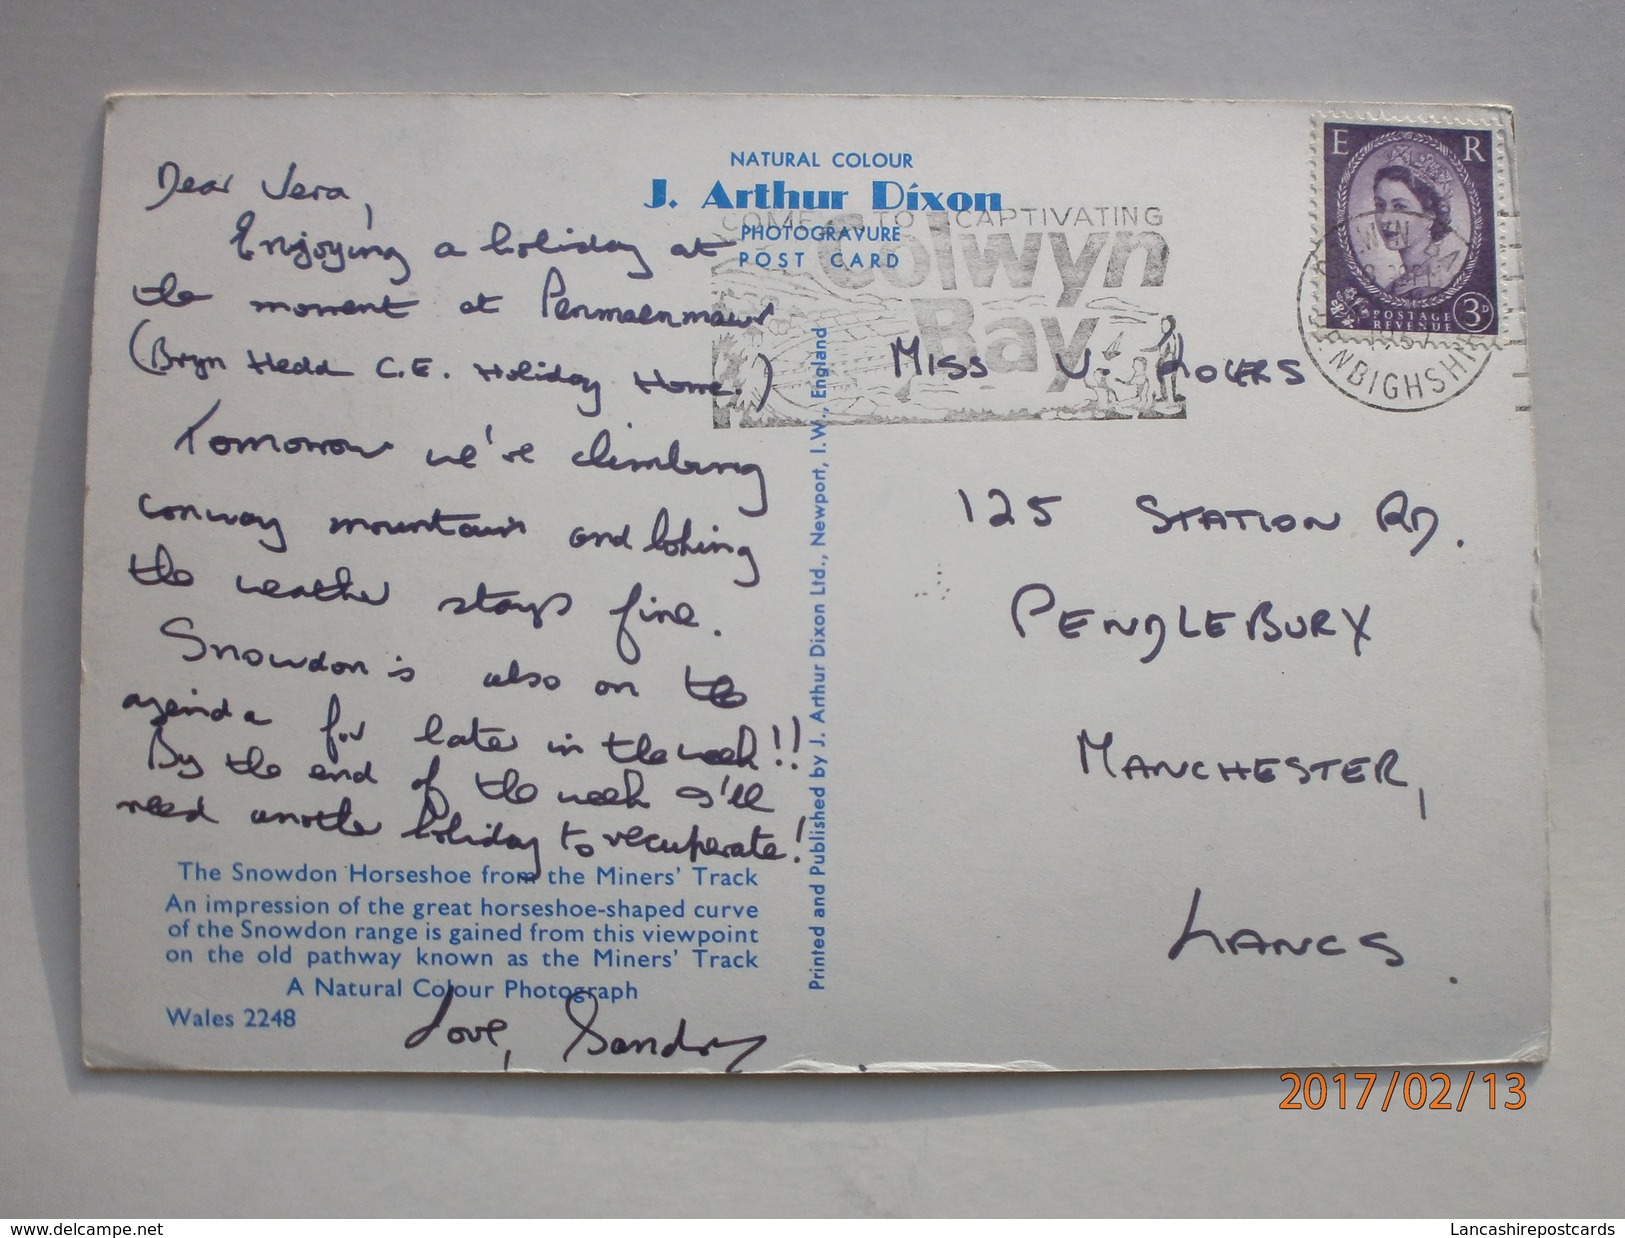 NATURAL COLOUR
J. Arthur Dixon
PHOTOGRAVURE
POST CARD
COME TO CAPTIVATING
Colwyn
Bay
E R
POSTAGE
REVENUE
3D
NBIGHSHI
Dear Vera,
Enjoying a holiday at
the moment at Penmaenmawr
(Bryn Hedd C.E. Holiday Home.)
Tomorrow we're climbing
conway mountain and hoping
the weather stays fine.
Snowdon is also on the
agenda for later in the week!!
By the end of the week I'll
need another holiday to recuperate!
The Snowdon Horseshoe from the Miners' Track
An impression of the great horseshoe-shaped curve
of the Snowdon range is gained from this viewpoint
on the old pathway known as the Miners' Track
A Natural Colour Photograph
Wales 2248
Love,
Printed and Published by J. Arthur Dixon Ltd., Newport, I.W., England
MISS V. ROGERS
125 STATION RD.
PENDLEBURY
MANCHESTER,
LANCS.
2017/02/13
www.delcampe.net
Lancashirepostcards